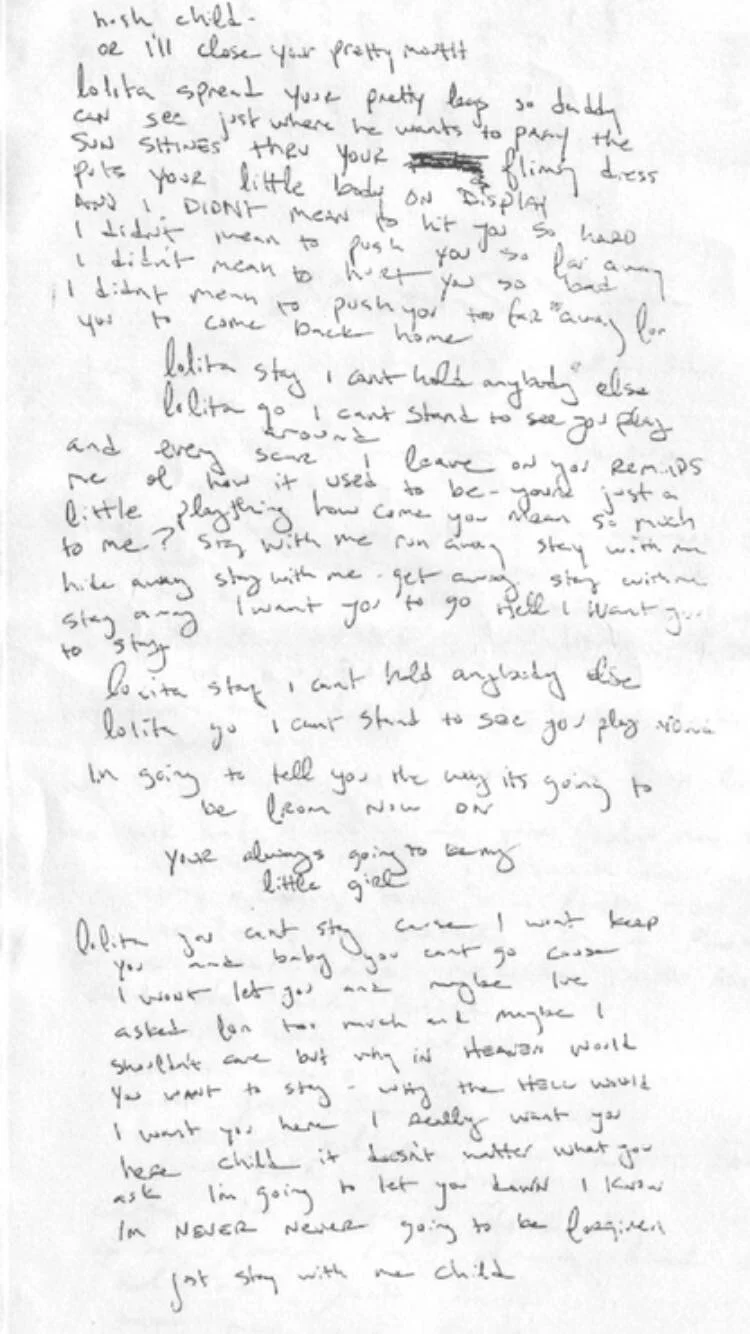 hush child -
or i'll close your pretty mouth
I didn't mean to push you so far away
I didn't mean to hurt you so bad
I didnt mean to push you too far away for
you to come back home
lolita stay i cant hold anybody else
lolita go I cant stand to see you play
around
and every scar I leave on you REMINDS
me of how it used to be - youre just a
little plaything how come you mean so much
to me? stay with me run away stay with me
hide away stay with me - get away stay with me
stay away I want you to go Hell I Want you
to stay
lolita stay i cant hold anybody else
lolita go I cant stand to see you play
Im going to tell you the way its going to
be from NOW ON
your always going to be my
little girl
lolita you cant stay cause I wont keep
you and baby you cant go cause
I wont let you and maybe Ive
asked for too much and maybe I
shouldnt care but why in HEAVEN would
you want to stay - why the HELL would
I want you here I really want you
here child it doesn't matter what you
ask Im going to let you down I know
Im NEVER NEVER going to be forgiven
just stay with me child